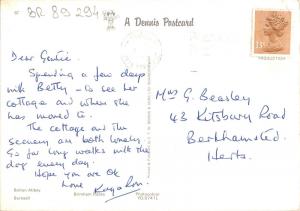 BR 89 294
A Dennis Postcard
13½P
Dear Gertie.
Spending a few days
with Betty - to see her
cottage and where she
has moved to.
The cottage and the
scenery are both lovely.
Go for long walks with the
dog every day.
Hope you are ok
love
Mrs G. Beasley
43 Kitsbury Road
Berkhamsted
Herts.
Bolton Abbey
Barnwell